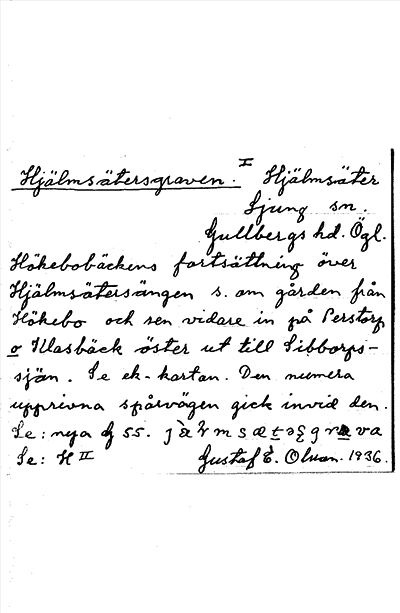 Hjälmsätersgraven. I Hjälmsäter
Ljung sn.
Gullbergs hd. Ögl.
Hökebobäckens fortsättning över
Hjälmsätersängen s. om gården från
Hökebo och sen vidare in på Perstorp
o Ulasbäck öster ut till Sibborps-
sjön. Se ek-kartan. Den numera
upprivna spårvägen gick invid den.
Se: nya 55.
Se: H II Gustaf E. Olsson. 1936.